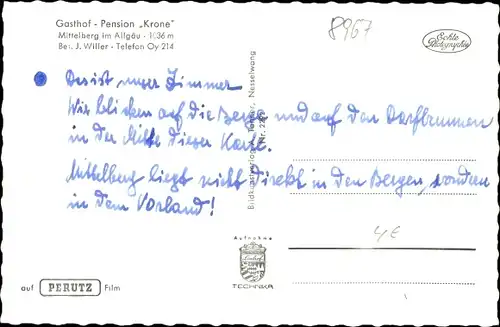 Gasthof - Pension „Krone"
Mittelberg im Allgäu - 1036 m
Bes. J. Willer - Telefon Oy 214
8967
Echte Photographie
Das ist unser Zimmer
Wir blicken auf die Berge und auf den Dorfbrunnen
in der Mitte dieser Karte.
Mittelberg liegt nicht direkt in den Bergen, sondern
in dem Vorland!
Nesselwang
4€
Aufnahme
TECHNIKA
auf PERUTZ Film